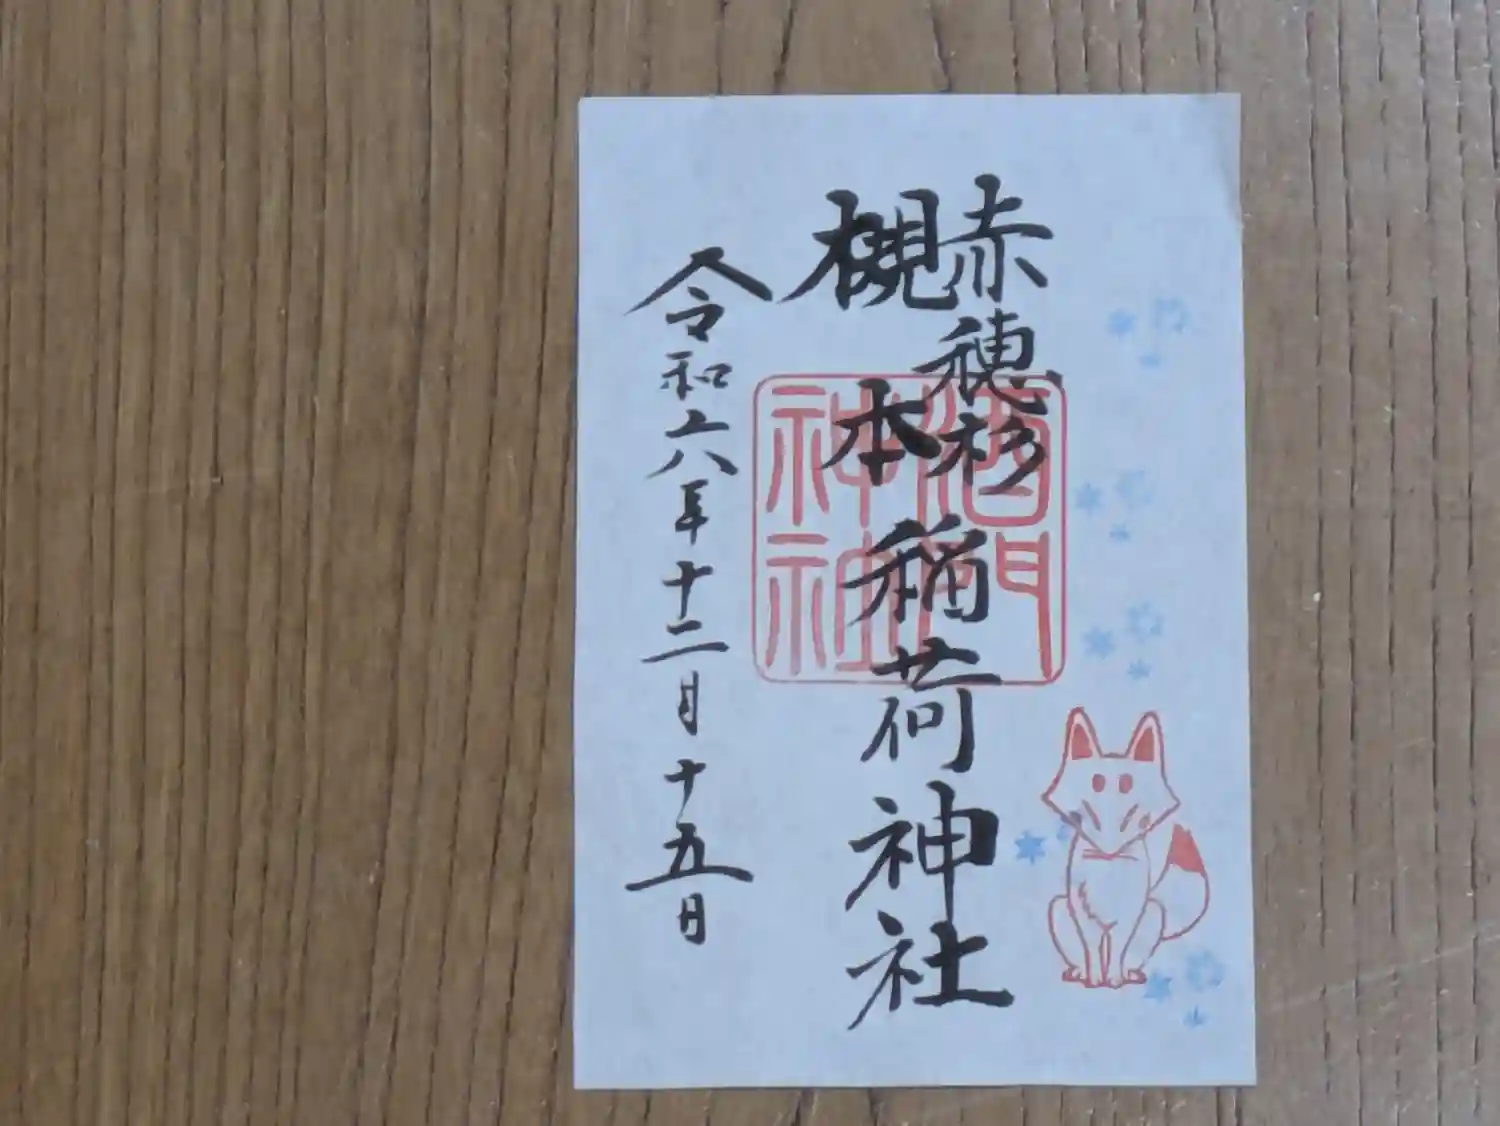 赤穂杉
槻本
稲荷神社
令和六年十二月十五日
神社